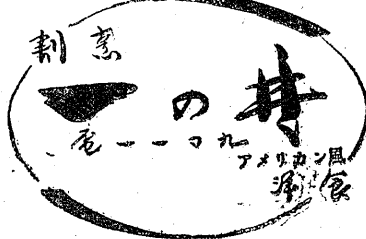 割烹
一の井
電一一四九
アメリカン風
洋食